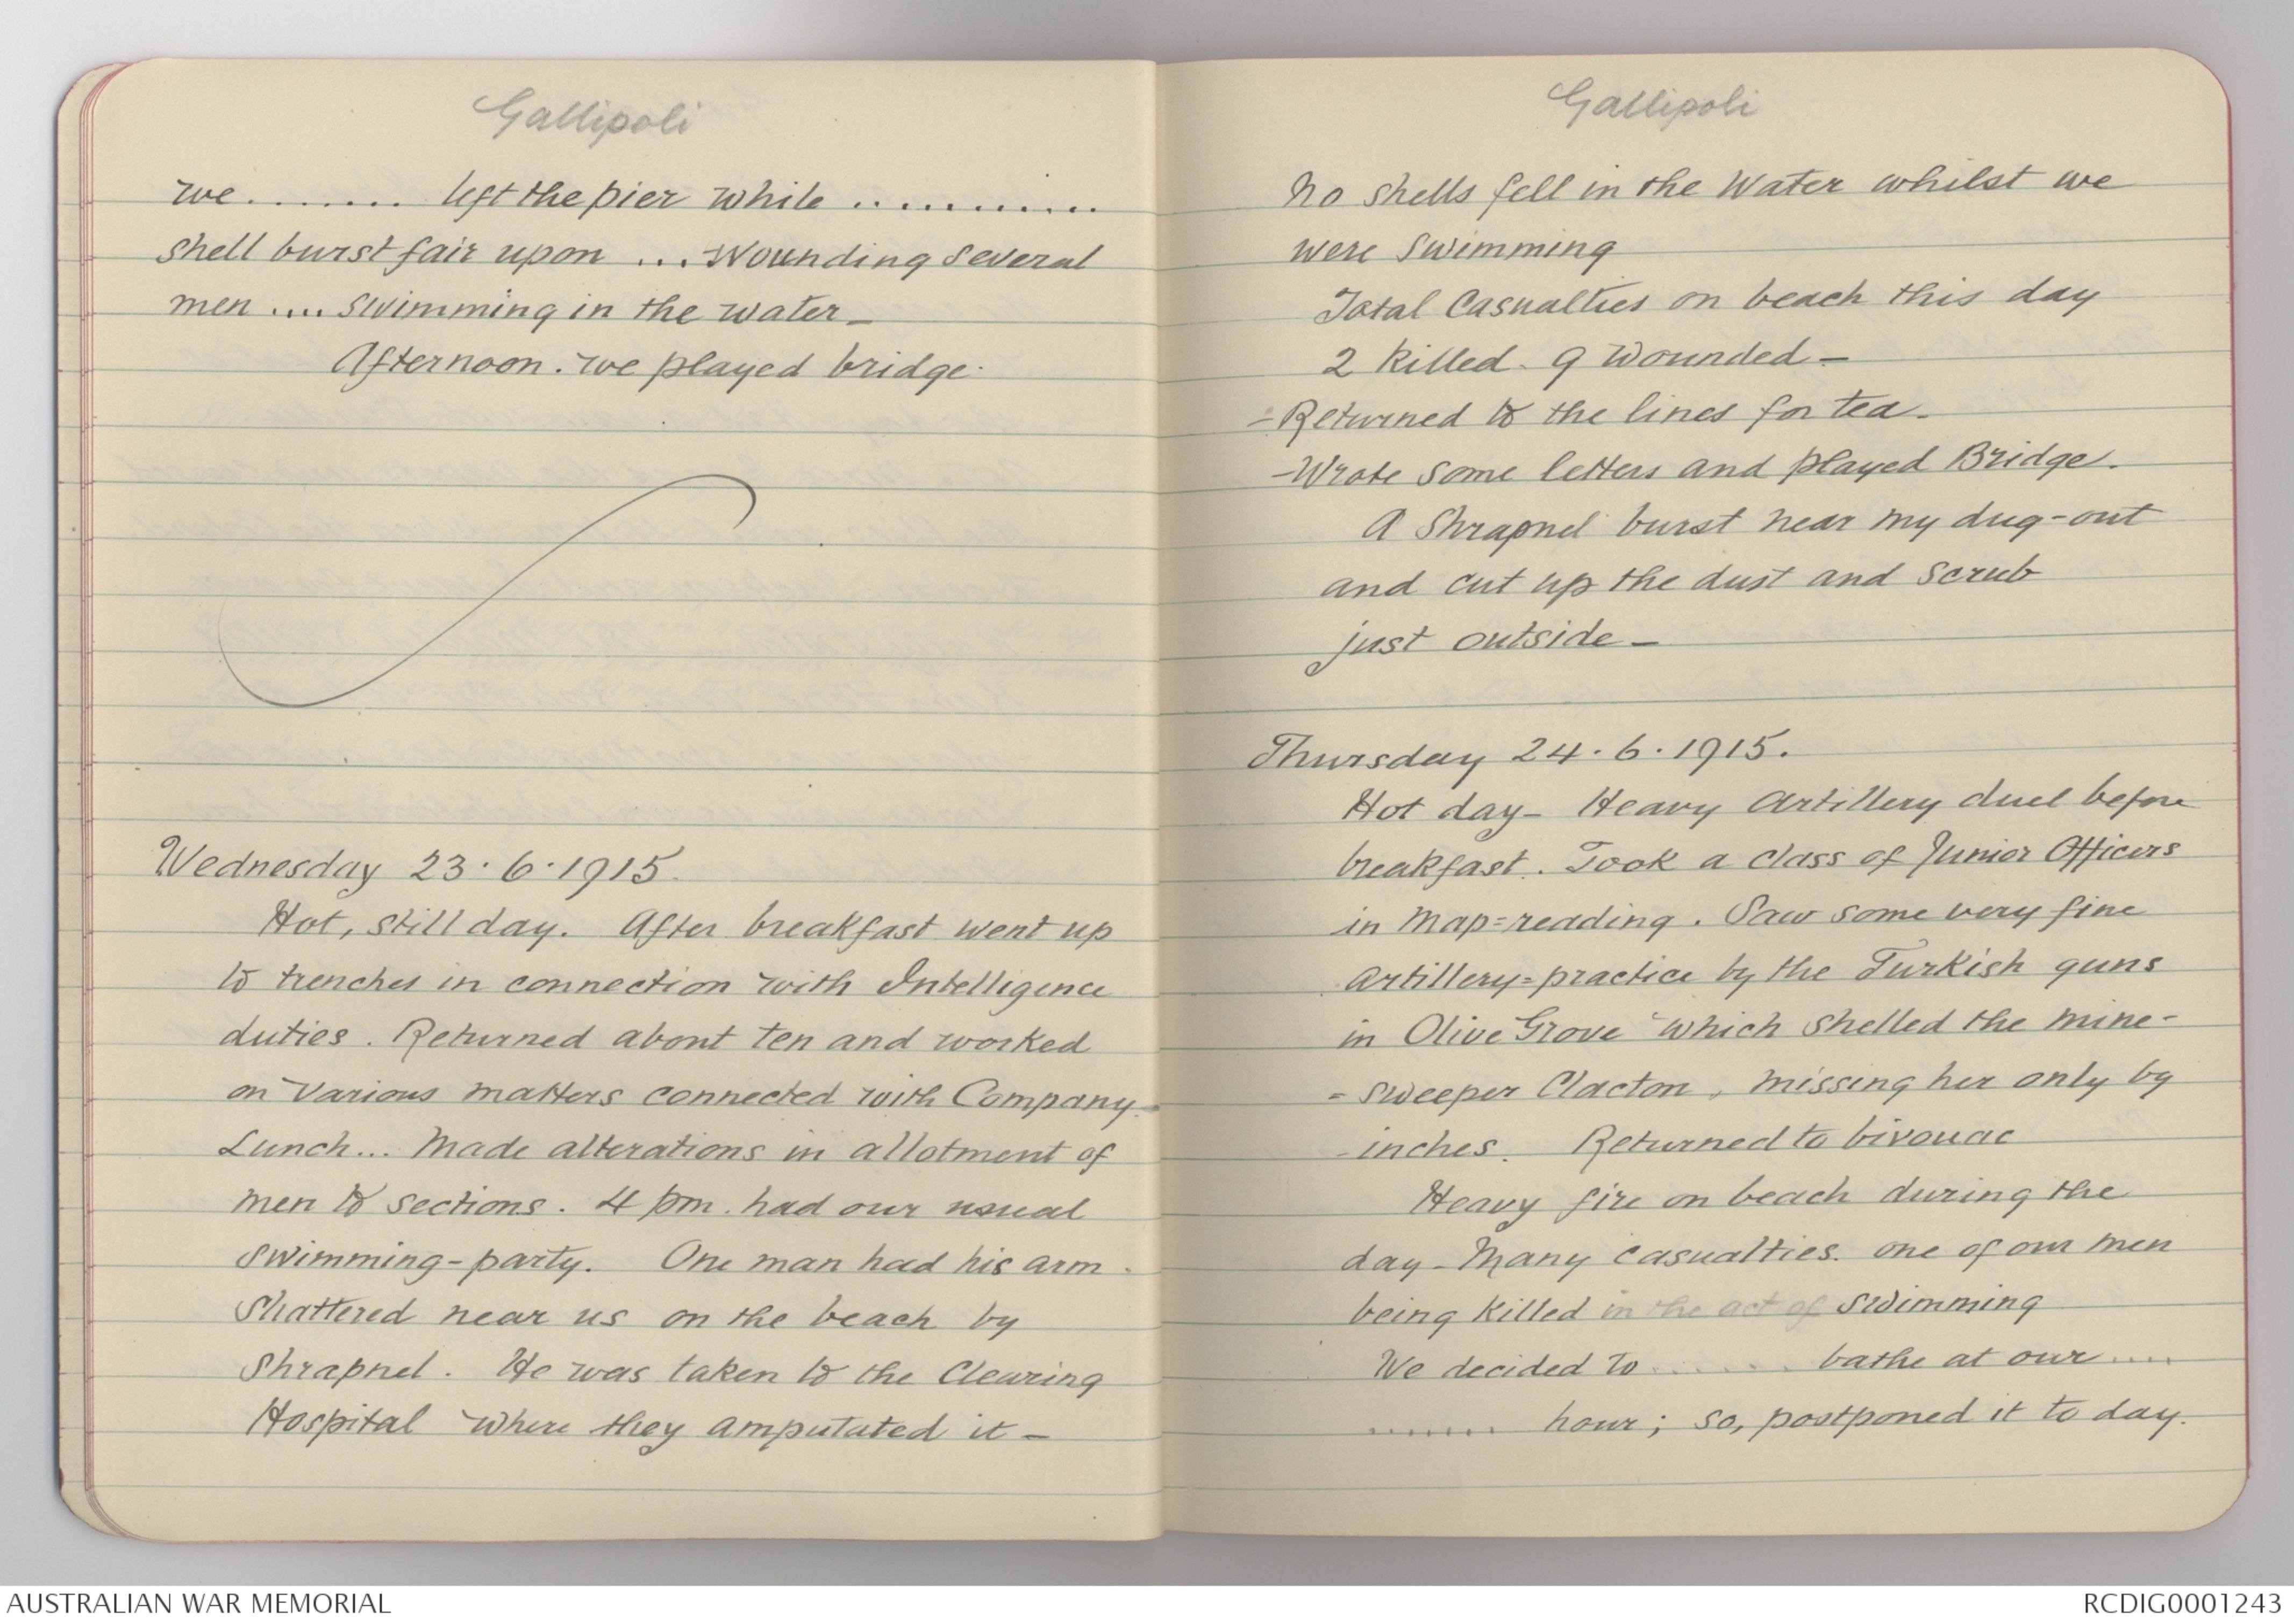 Gallipoli
we ........ left the pier while ............
shell burst fair upon ... Wounding several
men .... swimming in the water_
Afternoon. we played bridge.
Wednesday 23.6.1915.
Hot, still day. After breakfast went up
to trenches in connection with Intelligence
duties. Returned about ten and worked
on various matters connected with Company.
Lunch... Made alterations in allotment of
men to sections. 4 pm. had our usual
swimming-party. One man had his arm
shattered near us on the beach by
Shrapnel. He was taken to the Clearing
Hospital where they amputated it -
Gallipoli
No shells fell in the Water whilst we
were swimming
Total Casualties on beach this day
2 killed. 9 wounded -
- Returned to the lines for tea.
- Wrote some letters and played Bridge.
A Shrapnel burst near my dug-out
and cut up the dust and scrub
just outside -
Thursday 24.6.1915.
Hot day - Heavy Artillery duel before
breakfast. Took a class of Junior Officers
in Map=reading. Saw some very fine
artillery=practice by the Turkish guns
in Olive Grove which shelled the mine-
=sweeper Clacton, missing her only by
inches. Returned to bivouac
Heavy fire on beach during the
day - Many casualties. one of our men
being killed in the act of swimming
We decided to ....... bathe at our ....
....... hour; so, postponed it to day.
AUSTRALIAN WAR MEMORIAL
RCDIG0001243